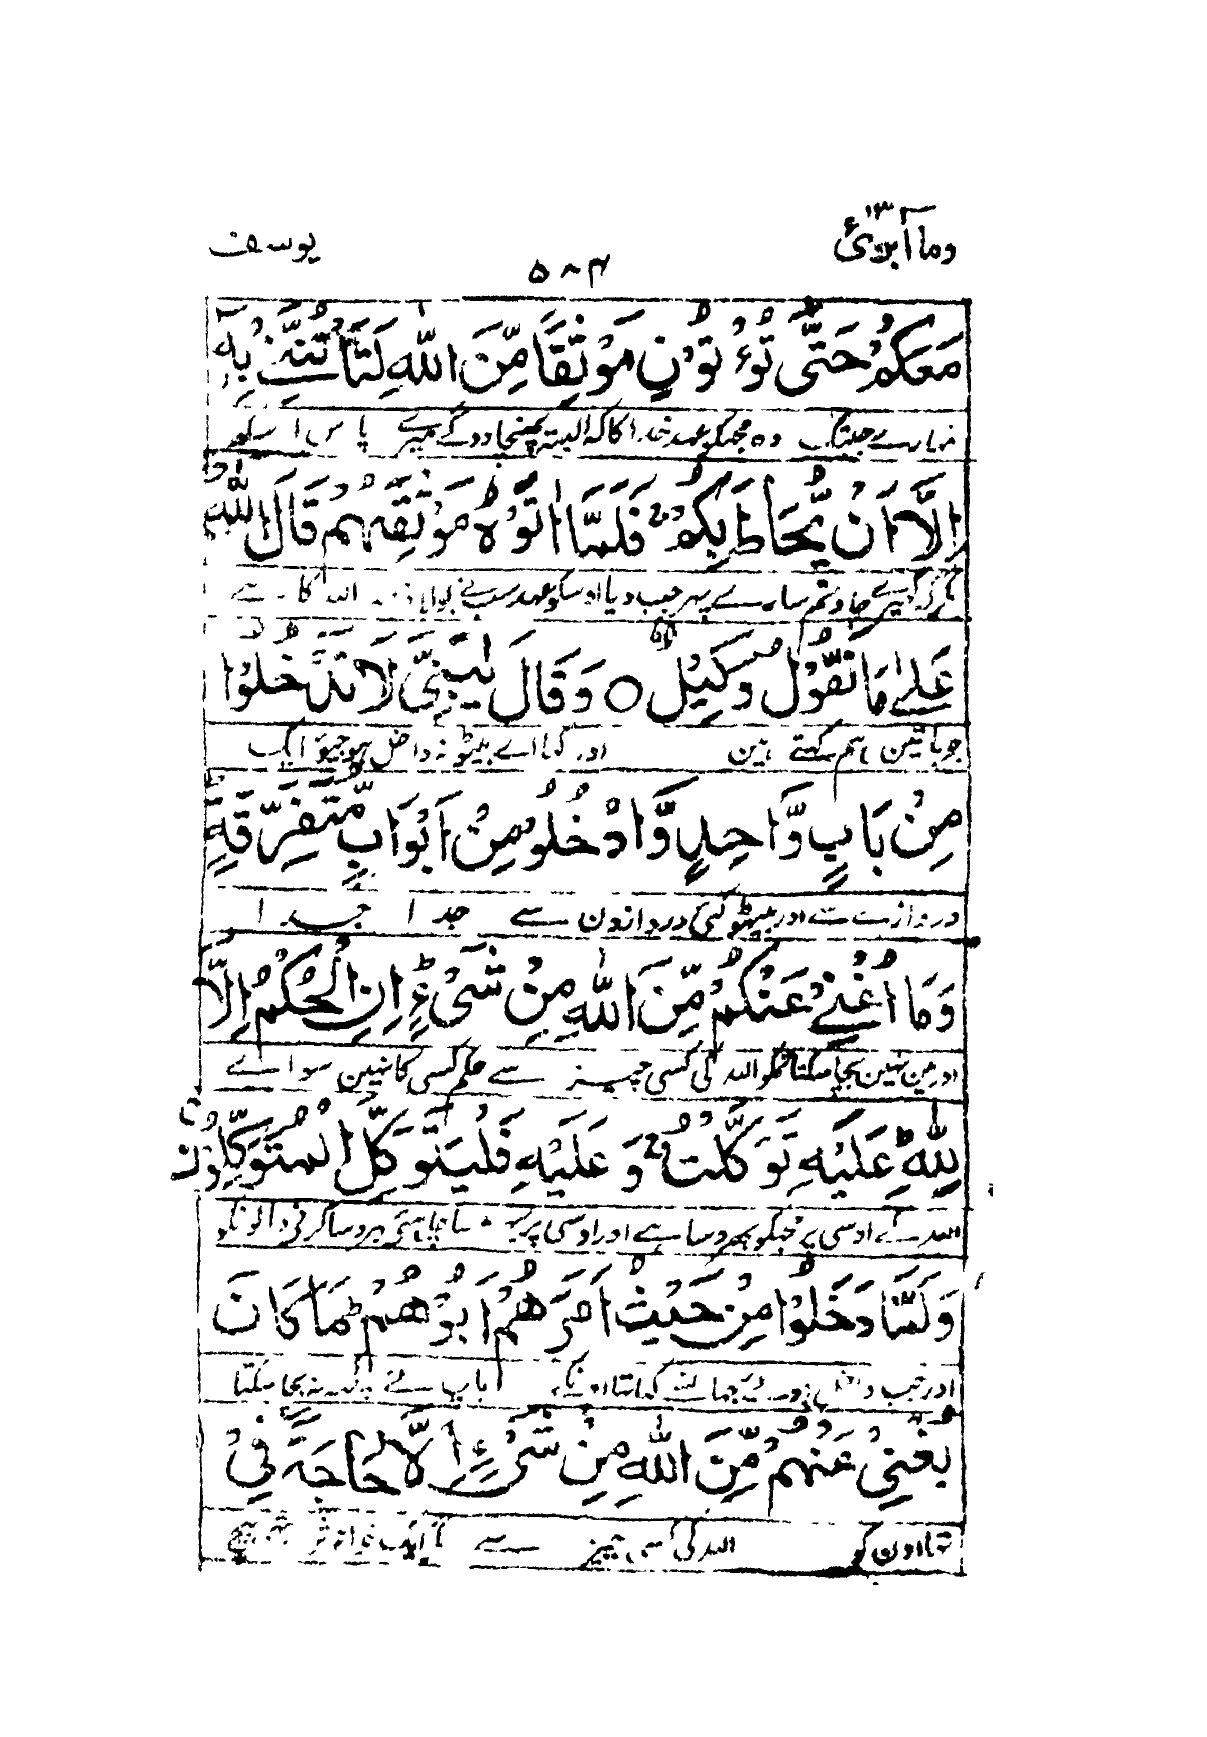 وما ابرئ ١٣
٥٨٤
يوسف
مَعَكُمْ حَتّٰى تُؤْتُوْنِ مَوْثِقًا مِّنَ اللّٰهِ لَتَاْتُنَّنِىْ بِهٖٓ
تمہارے جبتک دہ مجہکو عہد خدا کا کہ البتہ پہنچا دوگے میرے پاس اسکو
اِلَّآ اَنْ يُّحَاطَ بِكُمْ ۚ فَلَمَّآ اٰتَوْهُ مَوْثِقَهُمْ قَالَ اللّٰهُ
مگر کہ جاؤ تم سارے پہر جب دیا اوسکو عہد سب نے بولا اللہ کا ہے
عَلٰى مَا نَقُوْلُ وَكِيْلٌ ○ وَقَالَ يٰبَنِىَّ لَا تَدْخُلُوْا
جو باتین ہم کہتے ہین اور کہا اے بیٹو نہ داخل ہوجیو ایک
مِنْۢ بَابٍ وَّاحِدٍ وَّادْخُلُوْا مِنْ اَبْوَابٍ مُّتَفَرِّقَةٍ ؕ
دروازے سے اور بیٹہو کئی دروازون سے جدا جدا
وَمَآ اُغْنِىْ عَنْكُمْ مِّنَ اللّٰهِ مِنْ شَىْءٍ ؕ اِنِ الْحُكْمُ اِلَّا
اور مین نہین بچا سکتا تمکو اللہ کی کسی چیز سے حکم کسی کا نہین سواے
لِلّٰهِ ؕ عَلَيْهِ تَوَكَّلْتُ ۚ وَعَلَيْهِ فَلْيَتَوَكَّلِ الْمُتَوَكِّلُوْنَ
اللہ کے اوسی پر مجہکو بہروسا ہے اور اوسی پر بہروسا چاہئے بہروسا کرنیوالونکو
وَلَمَّا دَخَلُوْا مِنْ حَيْثُ اَمَرَهُمْ اَبُوْهُمْ ؕ مَا كَانَ
اور جب داخل ہوئے جہانسے کہا تہا اونکے باپ نے کچہہ نہ بچا سکتا
يُغْنِىْ عَنْهُمْ مِّنَ اللّٰهِ مِنْ شَىْءٍ اِلَّا حَاجَةً فِىْ
تہا اون کو اللہ کی کسی چیز سے مگر ایک